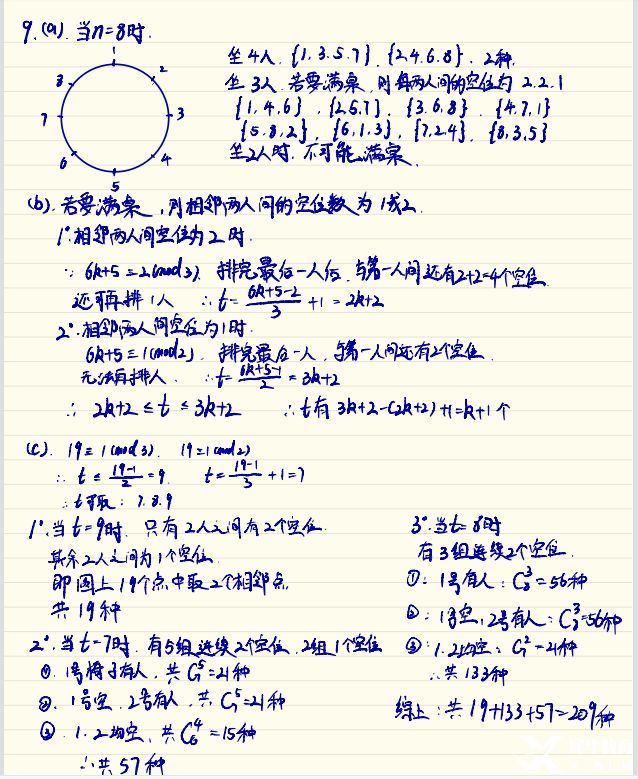 9.(a).当n=8时.
1
2
3
4
5
6
7
8
坐4人.{1.3.5.7}.{2.4.6.8}.2种.
坐3人.若要满桌,则每两人间的空位为2.2.1
{1,4,6},{2.5.7},{3.6.8},{4.7.1}
{5.8.2},{6.1.3},{7.2.4},{8.3.5}
坐2人时.不可能满桌.
(b).若要满桌,则相邻两人间的空位数为1或2.
1°.相邻两人间空位为2时.
∵6k+5≡2(mod3).排完最后一人后,与第一人间还有2+2=4个空位
还可再排1人 ∴t=\frac{6k+5-2}{3}+1=2k+2
2°.相邻两人间空位为1时.
6k+5≡1(mod2).排完最后一人,与第一人间还有2个空位.
无法再排人.∴t=\frac{6k+5-1}{2}=3k+2
∴2k+2≤t≤3k+2 ∴t有3k+2-(2k+2)+1=k+1个
(c).19≡1(mod3).19≡1(mod2)
∴t≤\frac{19-1}{2}=9 t≥\frac{19-1}{3}+1=7
∴t可取:7.8.9
1°.当t=9时.只有2人之间有2个空位.
其余2人之间为1个空位.
即圆上19个点中取2个相邻点.
共19种
2°.当t=7时.有5组连续2个空位.2组1个空位
①.1号椅子有人,共C_7^5=21种
②.1号空.2号有人,共C_7^5=21种
③.1.2均空,共C_6^4=15种
∴共57种
3°.当t=8时
有3组连续2个空位.
①:1号有人:C_8^3=56种
②:1号空,2号有人:C_8^3=56种
③:1.2均空:C_7^2=21种
∴共133种
综上:共19+133+57=209种